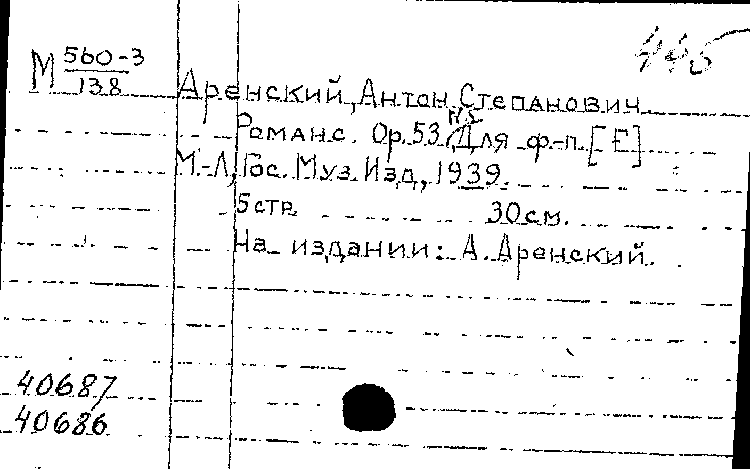 445
М 560-3
138
Аренский, Антон Степанович
№5
Романс. Ор.53. Для ф-п. [Е]
М.-Л, Гос. Муз. Изд, 1939.
5 стр. 30 см.
На издании: А. Аренский.
40687
40686